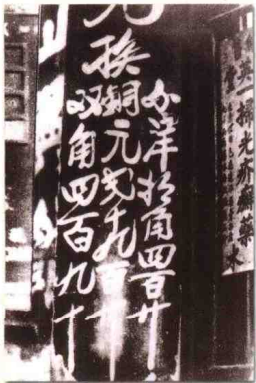 兌換
小洋拾角四百廿
銅元弍千九百十
双角四百九十
一掃光疥癬藥水